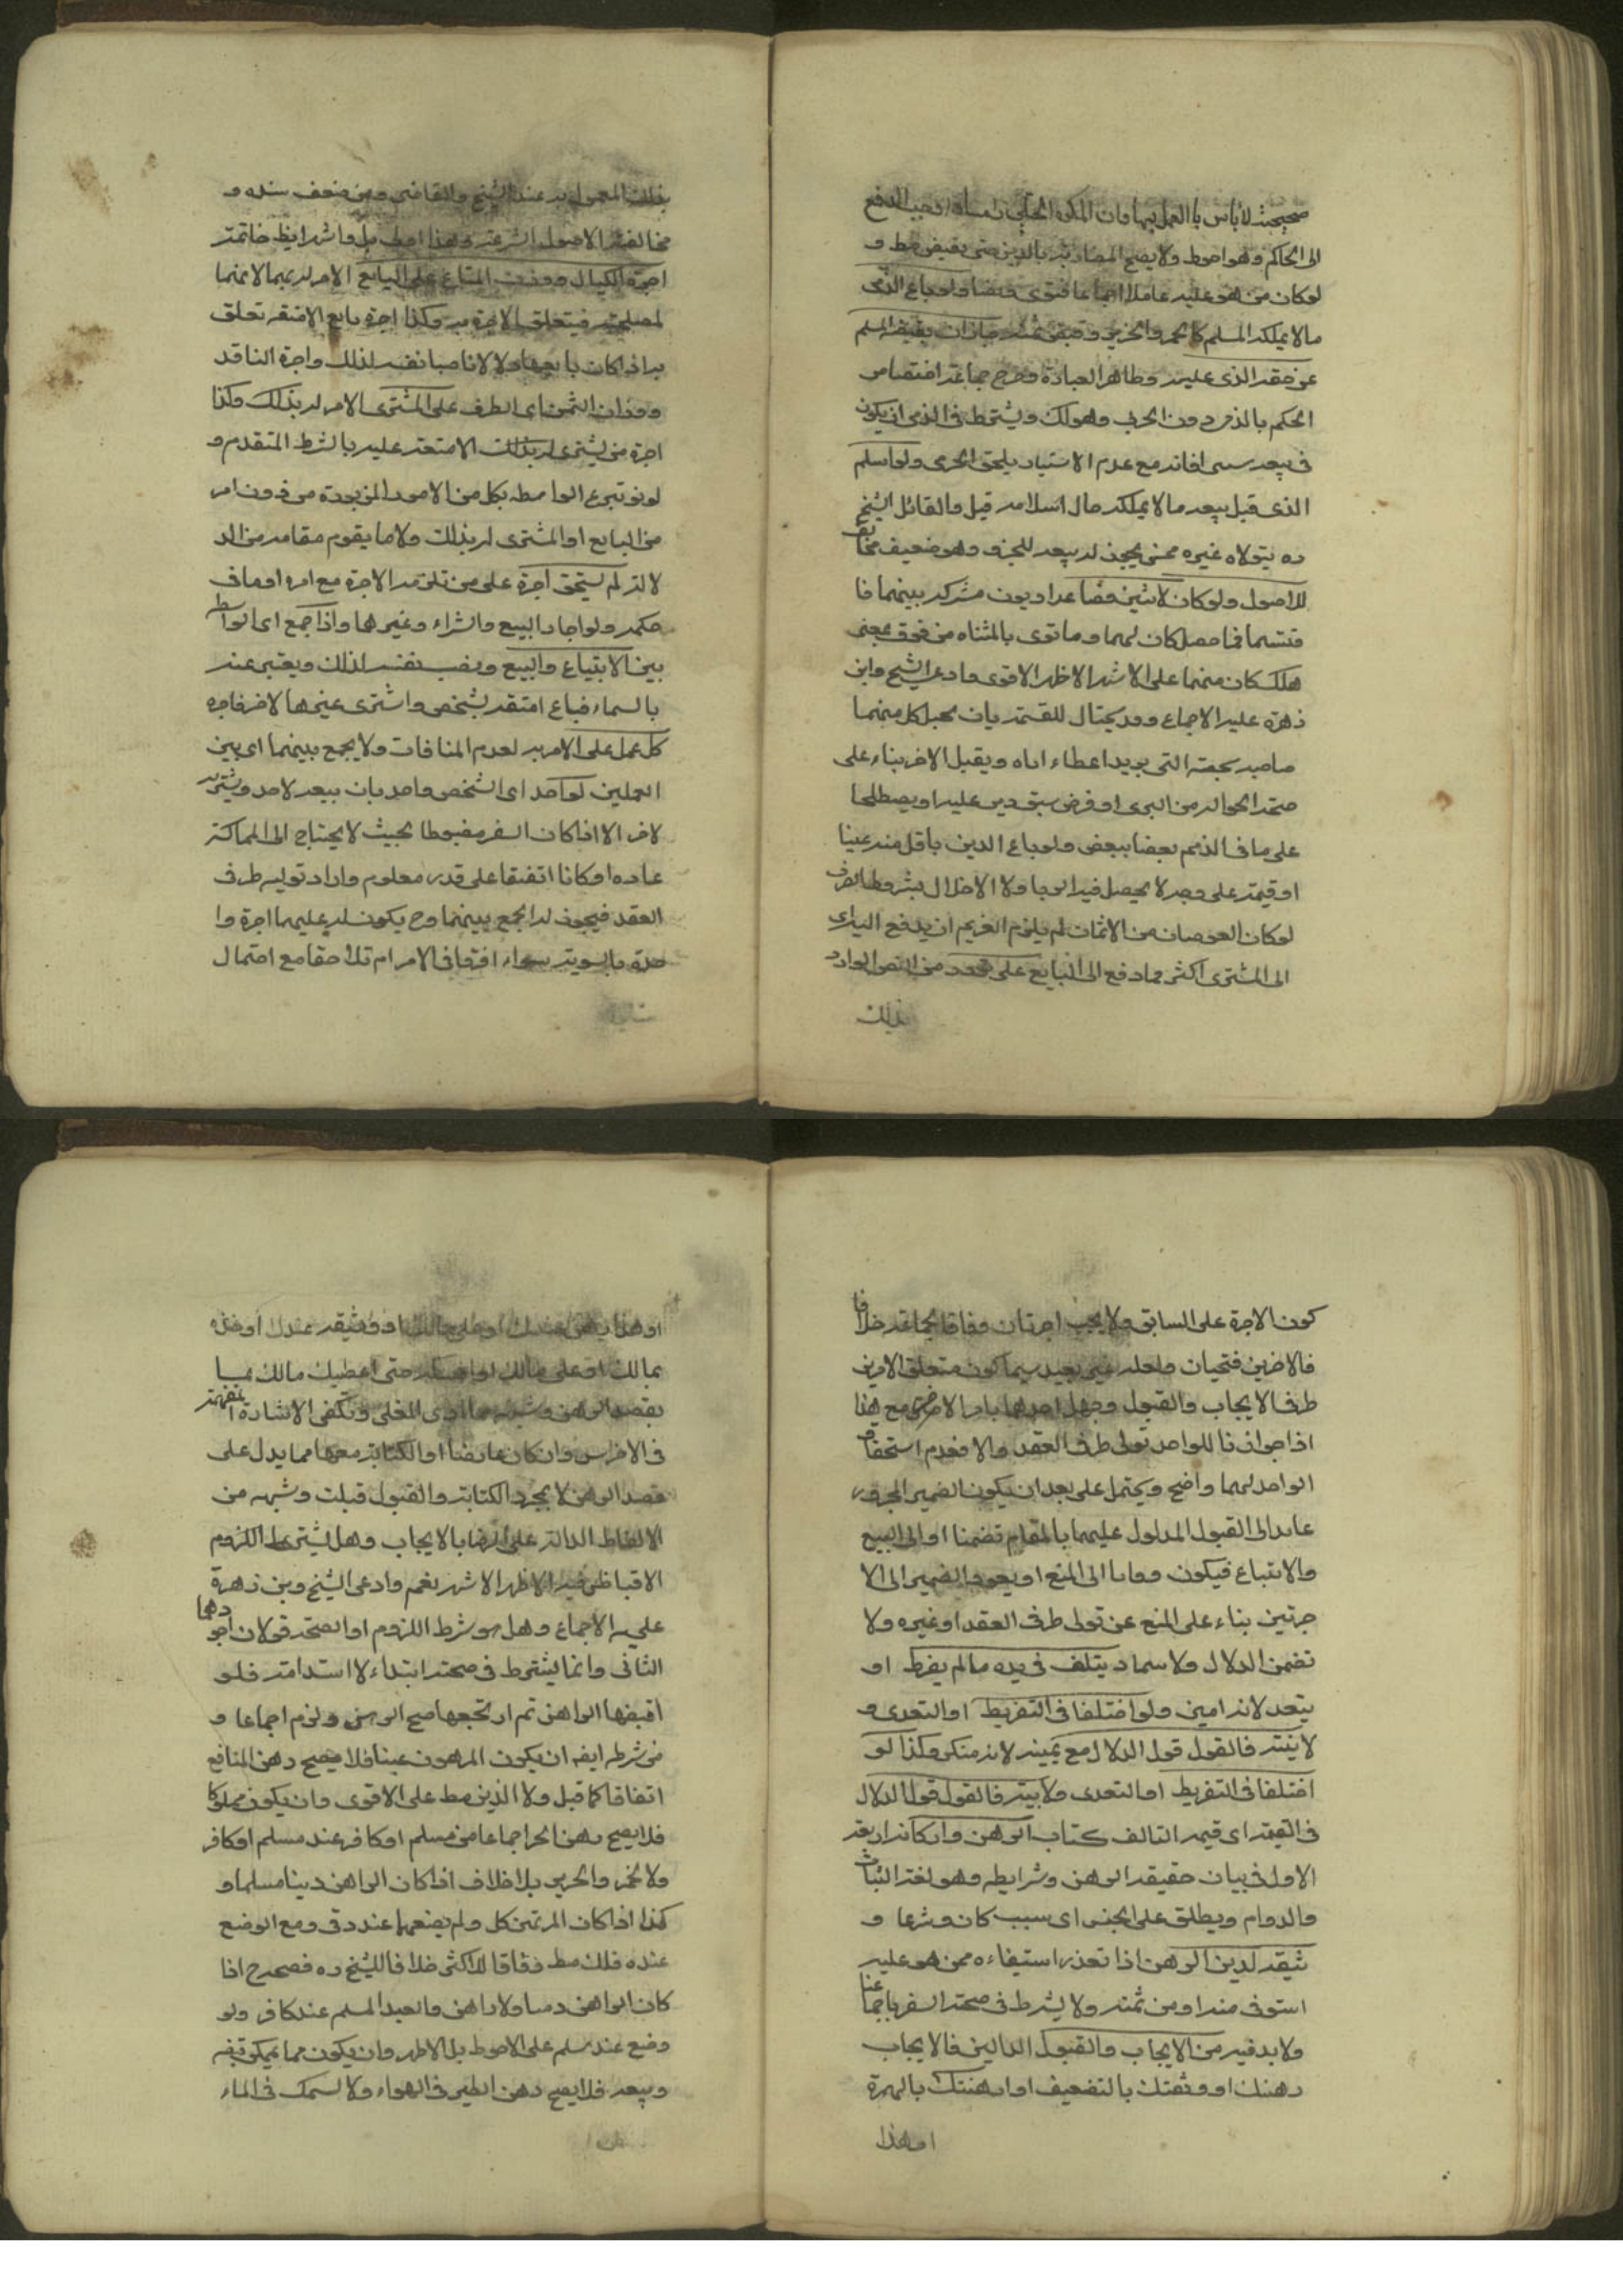 صحيحة لا باس بالعمل بها وان المكره الحلي وامساد اوجب الدفع
الى الحاكم وهو احوط ولا يصح المضاربة بالدين حتى يقبض مط و
لو كان من هو عليه عاملا اجماعا فتوى ونصا ولو باع الذمى
ما لا يملكه المسلم كالخمر والخنزير وقبض ثمنه جاز ان يقبضه المسلم
عن حقه الذى عليه وظاهر العبادة وصرح جماعة اختصاص
الحكم بالذمى دون الحربي وهو كك ويشترط في الذمى ان يكون
في بيعه سى افانه مع عدم الاستتار يلحق الحربى ولو اسلم
الذى قبل بيعه ما لا يملكه حال اسلامه قيل والقائل الشيخ
ره يتولاه غيره ممن يجوز له بيعه للخبر وهو ضعيف مخالف
للاصول ولو كان لاثنين فضاعدا ديون مشتركه بينهما فا
قتسما فما حصل كان لهما وما توى بالمثناه من فوق بمعنى
هلك كان منهما على الاشهر الاظهر الاقوى وادعى الشيخ وابن
زهرة عليه الاجماع وقد يحتال للقسمة بان يحيل كل منهما
صاحبه بحصته التى يريد اعطاء اياه ويقبل الاخر بناء على
صحة الحواله من البرى او فرض سبق دين عليه او يصطلحا
على ما في الذمم بعضا ببعض ولو باع الدين باقل منه عينا
او قيمة على وجه لا يحصل فيه الربا ولا الاخلال بشروط الصرف
لو كان العوضان من الاثمان لم يلزم الغريم ان يدفع اليه اى
الى المشترى اكثر مما دفع الى البايع على تردد من النص الوارد
بذلك
بذلك المعمول به عند الشيخ والقاضى ومن ضعف سنده و
مخالفته الاصول الشرعية وهذا اظهر بل واشهر ايض خاتمة
اجرة الكيال ووزن المتاع على البايع الامر له بهما لانهما
لمصلحته فيتعلق الاجرة به وكذا اجرة بايع الامتعة تعلق
به اذا كان بايعها دلالا ناصبا نفسه لذلك واجرة الناقد
ووزان الثمن اى الطرف على المشترى الامر له بذلك وكذا
اجرة من يشترى له بذلك الامتعة عليه بالشرط المتقدم و
لو تبرع الواسطه بكل من الامور المزبورة من دون امر
من البايع او المشترى له بذلك ولا ما يقوم مقامه من الد
لالة لم يستحق اجرة على من تلزمه الاجرة مع امره او ما في
حكمه ولو اجاز البيع والشراء وغيرها واذا جمع اى الواسط
بين الابتياع والبيع ونصب نفسه لذلك ويعتبر عنه
بالسمار فباع امتعة لشخص واشترى غيرها لاخر فاجره
كل عمل على الامر به لعدم المنافات ولا يجمع بينهما اى بين
العملين لواحد اى الشخص واحد بان يبيعه لاحد ويشتريه
لاخر الا اذا كان السعر مضبوطا بحيث لا يحتاج الى المماكسة
عاده او كانا اتفقا على قدر معلوم واراد توليه طرف
العقد فيجوز له الجمع بينهما وح يكون له عليهما اجرة وا
حدة بالسوية سواء اقترنا في الامر ام تلاحقا مع احتمال
كون الاجرة على السابق ولا يجب اجرتان وفاقا لجماعة خلافا
فالاخرين فتجبان ولعله غير بعيد سيما كون متعلق الامرين
طرف الايجاب والقبول وجهل احدهما بامر الاخر مع هذا
اذا جوازنا للواحد تولى طرف العقد والا فعدم استحقاق
الواحد لهما واضح ويحتمل على بعد ان يكون الضمير المجرور
عايد الى القبول المدلول عليهما بالمقام تضمنا او الى البيع
والابتياع فيكون وماىا الى المنع او يعود الضمير الى الا
جرتين بناء على المنع عن تولى طرف العقد او غيره ولا
تضمن الدلال ولا سماد يتلف في يده ما لم يفرط او
يتعد لانه امين ولو اختلفا في التفريط او التعدى و
لا بينة فالقول قول الدلال مع يمينه لانه منكر وكذا لو
اختلفا في التفريط او التعدى ولا بينة فالقول قول الدلال
في القيمة اى قيمة التالف كتاب الرهن واركانه اربعة
الاول في بيان حقيقة الرهن وشرايطه وهو لغة الثبات
والدوام ويطلق على الحبس اى سبب كان وشرعا و
ثيقة لدين الرهن اذا تعذر استيفاءه ممن هو عليه
استوفى منه او من ثمنه ولا يشرط في صحته السفر باجماعنا
ولا بد فيه من الايجاب والقبول الدالين فالايجاب
رهنتك او وثقتك بالتضعيف او ارهنتك بالهمزة
او هذا
او هذا رهن عندك او على مالك او وثيقة عندك او خذه
بمالك او على مالك او امسكه حتى اعطيك مالك بها
بقصد الرهن وشبهه مما ادى المعنى وتكفى الاشارة المفهمة
في الاخرس وان كان عارضا او الكتابة معها مما يدل على
قصد الرهن لا بمجرد الكتابة والقبول قبلت وشبهه من
الالفاظ الدالة على الرضا بالايجاب وهل يشترط اللزوم
الاقباظ فيه الاظهر الاشهر نعم وادعى الشيخ وبن زهرة
عليه الاجماع وهل هو شرط اللزوم او الصحة قولان اجودهما
الثانى وانما يشترط في صحته ابتداء لا استدامة فلو
اقبضها الراهن ثم ارتجعها صح الرهن ولزم اجماعا و
من شرطه ايضه ان يكون المرهون عينا فلا يصح رهن المنافع
اتفاقا كما قيل ولا الدين مط على الاقوى وان يكون مملوكا
فلا يصح رهن الحر اجماعا من مسلم او كافر عند مسلم او كافر
ولا الخمر والخنزير بلا خلاف اذا كان الراهن دينا مسلما و
كذا اذا كان المرتهن كل ولم يضعها عند ذمى ومع الوضع
عنده فلك مط وفاقا للاكثر خلافا للشيخ ره فصحح اذا
كان الراهن ذميا ولا راهن والعبد المسلم عند كافر ولو
وضع عند مسلم على الاحوط بل الاظهر وان يكون مما يمكن قبضه
وبيعه فلا يصح رهن الطير في الهواء ولا السمك في الماء